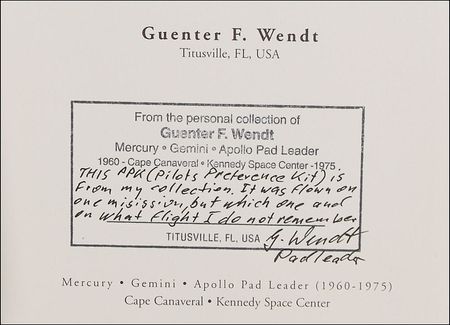 Guenter F. Wendt
Titusville, FL, USA
From the personal collection of
Guenter F. Wendt
Mercury • Gemini • Apollo Pad Leader
1960 - Cape Canaveral • Kennedy Space Center - 1975
THIS APK (Pilots Preference Kit) is
From my collection. It was flown on
one misission, but which one and
on what flight I do not remember
TITUSVILLE, FL, USA G. Wendt
Padleader
Mercury • Gemini • Apollo Pad Leader (1960-1975)
Cape Canaveral • Kennedy Space Center